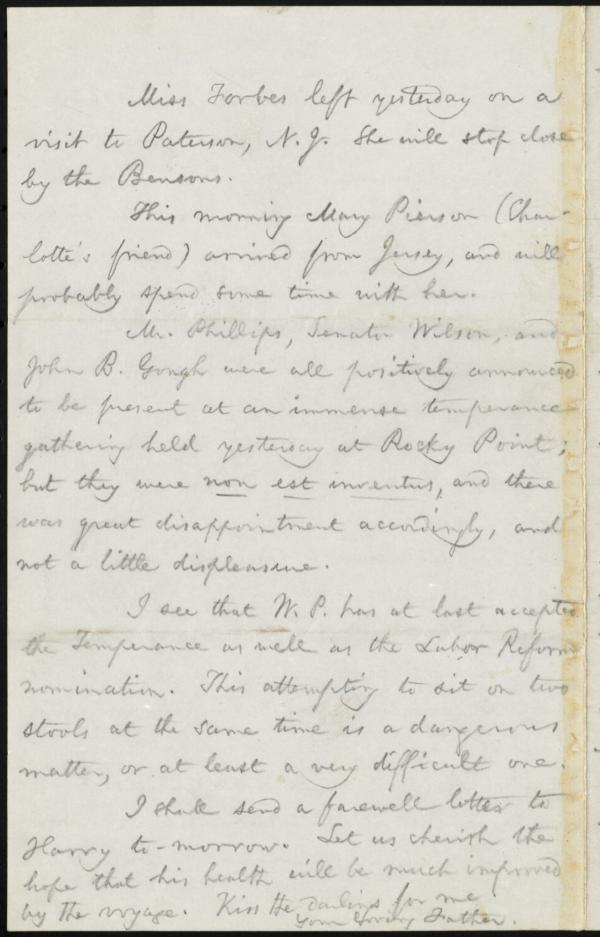 Miss Forbes left yesterday on a
visit to Paterson, N. J. She will stop close
by the Bensons.
This morning Mary Pierson (Char-
lotte's friend) arrived from Jersey, and will
probably spend some time with her.
Mr. Phillips, Senator Wilson, and
John B. Gough were all positively announced
to be present at an immense temperance
gathering held yesterday at Rocky Point;
but they were non est inventus, and there
was great disappointment accordingly, and
not a little displeasure.
I see that W. P. has at last accepted
the Temperance as well as the Labor Reform
nomination. This attempting to sit on two
stools at the same time is a dangerous
matter, or at least a very difficult one.
I shall send a farewell letter to
Harry to-morrow. Let us cherish the
hope that his health will be much improved
by the voyage. Kiss the darlings for me.
Your loving Father.